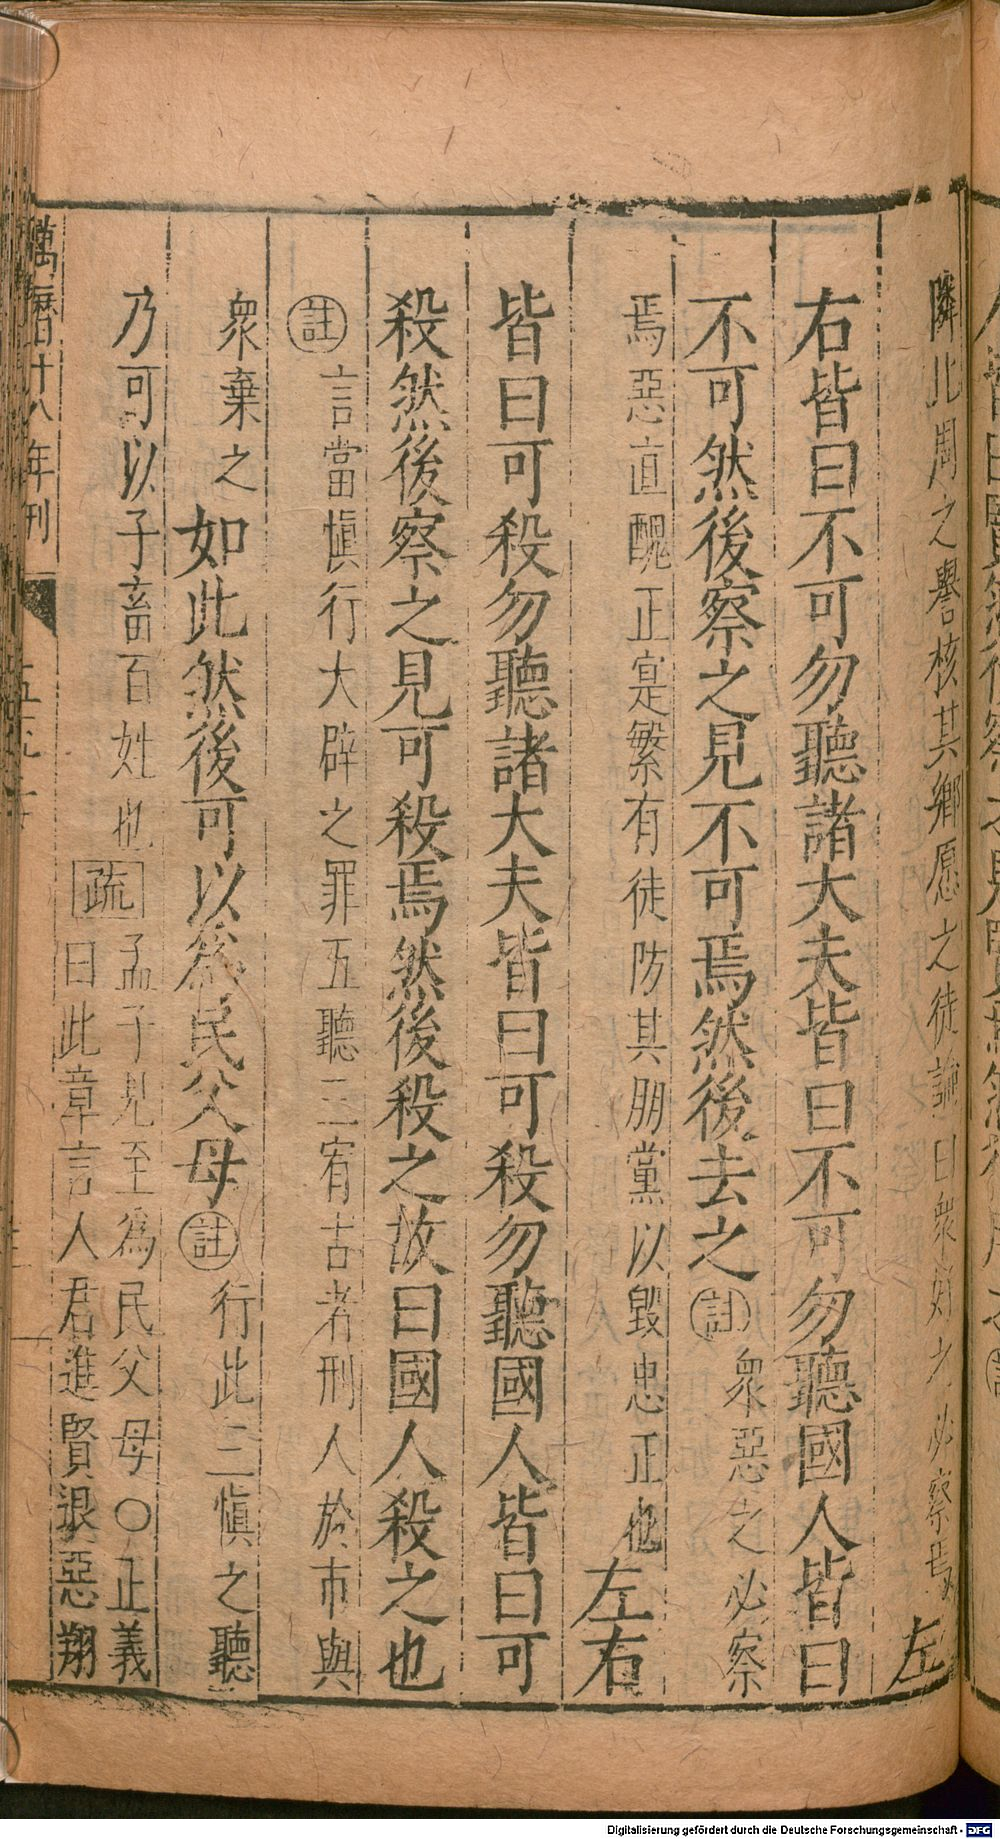 隣比周之譽核其鄉愿之徒論曰衆好之必察焉 左
右皆曰不可勿聽諸大夫皆曰不可勿聽國人皆曰
不可然後察之見不可焉然後去之 註 衆惡之必察
焉惡直醜正寔繁有徒防其朋黨以毀忠正也 左右
皆曰可殺勿聽諸大夫皆曰可殺勿聽國人皆曰可
殺然後察之見可殺焉然後殺之故曰國人殺之也
註 言當慎行大辟之罪五聽三宥古者刑人於市與
衆棄之 如此然後可以爲民父母 註 行此三慎之聽
乃可以子畜百姓也 疏 孟子見至為民父母○正義
曰此章言人君進賢退惡翔
萬曆十八年刊
Digitalisierung gefördert durch die Deutsche Forschungsgemeinschaft - DFG